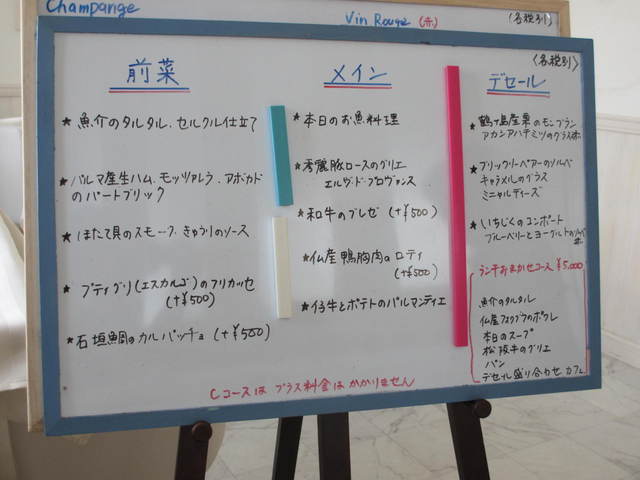 Champange
Vin Rouge (赤)
(各税別)
(各税別)
前菜
★魚介のタルタル、セルクル仕立て
★パルマ産生ハム、モッツァレラ、アボカド
のパートブリック
★ほたて貝のスモーク、きゅうりのソース
★プティグリ(エスカルゴ)のフリカッセ
(+¥500)
★石垣鯛のカルパッチョ (+¥500)
メイン
★本日のお魚料理
★秀麗豚ロースのグリエ
エルヴ・ド・プロヴァンス
★和牛のブレゼ (+¥500)
★仏産鴨胸肉のロティ
(+¥500)
★仔牛とポテトのパルマンティエ
デセール
★鶴ヶ島産栗のモンブラン
アカシアハチミツのグラス添
★ブリックリーペアーのソルベ
キャラメルのグラス
ミニャルディーズ
★いちじくのコンポート
ブルーベリーとヨーグルトのソルベ
添
ランチおまかせコース ¥5,000
魚介のタルタル
仏産フォアグラのポワレ
本日のスープ
松阪牛のグリエ
パン
デセール盛り合わせ カフェ
Cコースは プラス料金は かかりません